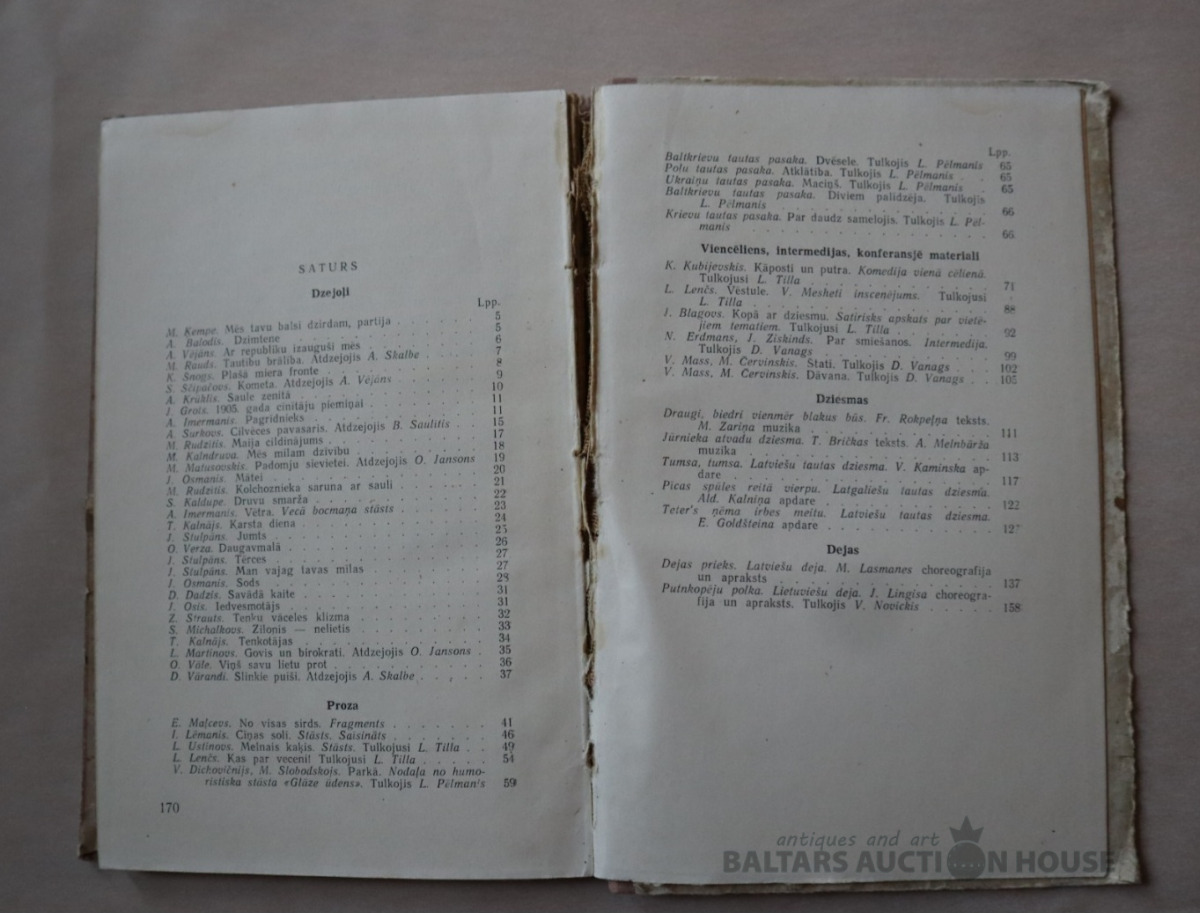 SATURS
Dzejoļi
Lpp.
M. Ķempe. Mēs tavu balsi dzirdam, partija 5
A. Balodis. Dzimtene 5
A. Vējāns. Ar republiku izauguši mēs 6
M. Rauds. Tautību brālība. Atdzejojis A. Skalbe 7
K. Snogs. Plašā miera fronte 8
S. Ščipačovs. Komēta. Atdzejojis A. Vējāns 9
A. Krūklis. Saule zenītā 10
J. Grots. 1905. gada cīnītāju piemiņai 11
A. Imermanis. Pagrīdnieks 11
A. Surkovs. Cilvēces pavasaris. Atdzejojis B. Saulītis 15
M. Rudzītis. Maija cildinājums 17
M. Kalndruva. Mēs mīlam dzīvību 18
M. Matusovskis. Padomju sievietei. Atdzejojis O. Jansons 19
J. Osmanis. Mātei 20
M. Rudzītis. Kolchoznieka saruna ar sauli 21
S. Kaldupe. Druvu smarža 22
A. Imermanis. Vētra. Vecā bocmaņa stāsts 23
T. Kalnājs. Karsta diena 24
J. Stulpāns. Jumts 25
O. Verza. Daugavmalā 26
J. Stulpāns. Tērces 27
J. Stulpāns. Man vajag tavas mīlas 27
J. Osmanis. Sods 28
D. Dadzis. Savādā kaite 31
J. Osis. Iedvesmotājs 31
Z. Strauts. Tenku vāceles klizma 32
S. Michalkovs. Zilonis — nelietis 33
T. Kalnājs. Tenkotājas 34
L. Martinovs. Govis un birokrāti. Atdzejojis O. Jansons 35
O. Vāle. Viņš savu lietu prot 36
D. Vārandi. Slinkie puiši. Atdzejojis A. Skalbe 37
Proza
E. Maļcevs. No visas sirds. Fragments 41
I. Lēmanis. Cīņas solī. Stāsts. Saīsināts 46
L. Ustinovs. Melnais kaķis. Stāsts. Tulkojusi L. Tilla 49
L. Lenčs. Kas par veceni! Tulkojusi L. Tilla 54
V. Dichovičnijs, M. Slobodskojs. Parkā. Nodaļa no humo-
ristiska stāsta «Glāze ūdens». Tulkojis L. Pēlmanis 59
170
Lpp.
Baltkrievu tautas pasaka. Dvēsele. Tulkojis L. Pēlmanis 65
Poļu tautas pasaka. Atklātība. Tulkojis L. Pēlmanis 65
Ukraiņu tautas pasaka. Maciņš. Tulkojis L. Pēlmanis 65
Baltkrievu tautas pasaka. Diviem palīdzēja. Tulkojis
L. Pēlmanis 66
Krievu tautas pasaka. Par daudz samelojis. Tulkojis L. Pēl-
manis 66
Viencēliens, intermēdijas, konferansjē materiāli
K. Kubijevskis. Kāposti un putra. Komēdija vienā cēlienā.
Tulkojusi L. Tilla 71
L. Lenčs. Vēstule. V. Mesketi inscenējums. Tulkojusi
L. Tilla 88
I. Blagovs. Kopā ar dziesmu. Satīrisks apskats par vietē-
jiem tematiem. Tulkojusi L. Tilla 92
N. Erdmans, J. Ziskinds. Par smiešanos. Intermēdija.
Tulkojis D. Vanags 99
V. Mass, M. Červinskis. Stati. Tulkojis D. Vanags 102
V. Mass, M. Červinskis. Dāvana. Tulkojis D. Vanags 105
Dziesmas
Draugi, biedri vienmēr blakus būs. Fr. Rokpeļņa teksts.
M. Zariņa mūzika 111
Jūrnieka atvadu dziesma. T. Bričkas teksts. A. Melnbārža
mūzika 113
Tumsa, tumsa. Latviešu tautas dziesma. V. Kaminska ap-
dare 117
Picas spūles reitā vierpu. Latgaliešu tautas dziesma.
Ald. Kalniņa apdare 122
Teter's ņēma irbes meitu. Latviešu tautas dziesma.
E. Goldšteina apdare 127
Dejas
Dejas prieks. Latviešu deja. M. Lasmanes choreogrāfija
un apraksts 137
Putnkopēju polka. Lietuviešu deja. J. Lingisa choreogrā-
fija un apraksts. Tulkojis V. Novickis 158
antiques and art
BALTARS AUCTION HOUSE